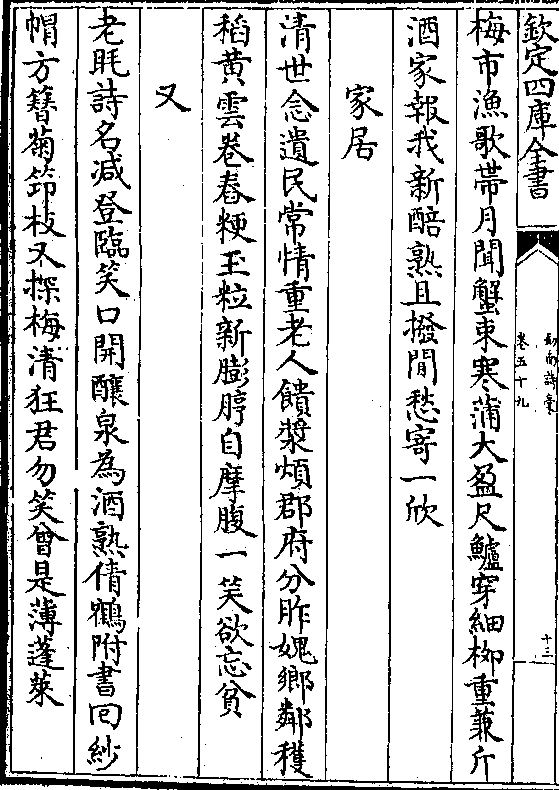 欽定四庫全書
劍南詩稾
卷五十九
十三
梅市漁歌帶月聞蟹束寒蒲大盈尺鱸穿細栁重兼斤
酒家報我新醅熟且撥閒愁寄一欣
家居
清世念遺民常情重老人饋漿煩郡府分胙媿鄉鄰穫
稻黃雲卷舂粳玉粒新膨脝自摩腹一笑欲忘貧
又
老眊詩名減登臨笑口開釀泉為酒熟倩鶴附書回紗
帽方簪菊筇枝又探梅清狂君勿笑曾是薄蓬萊